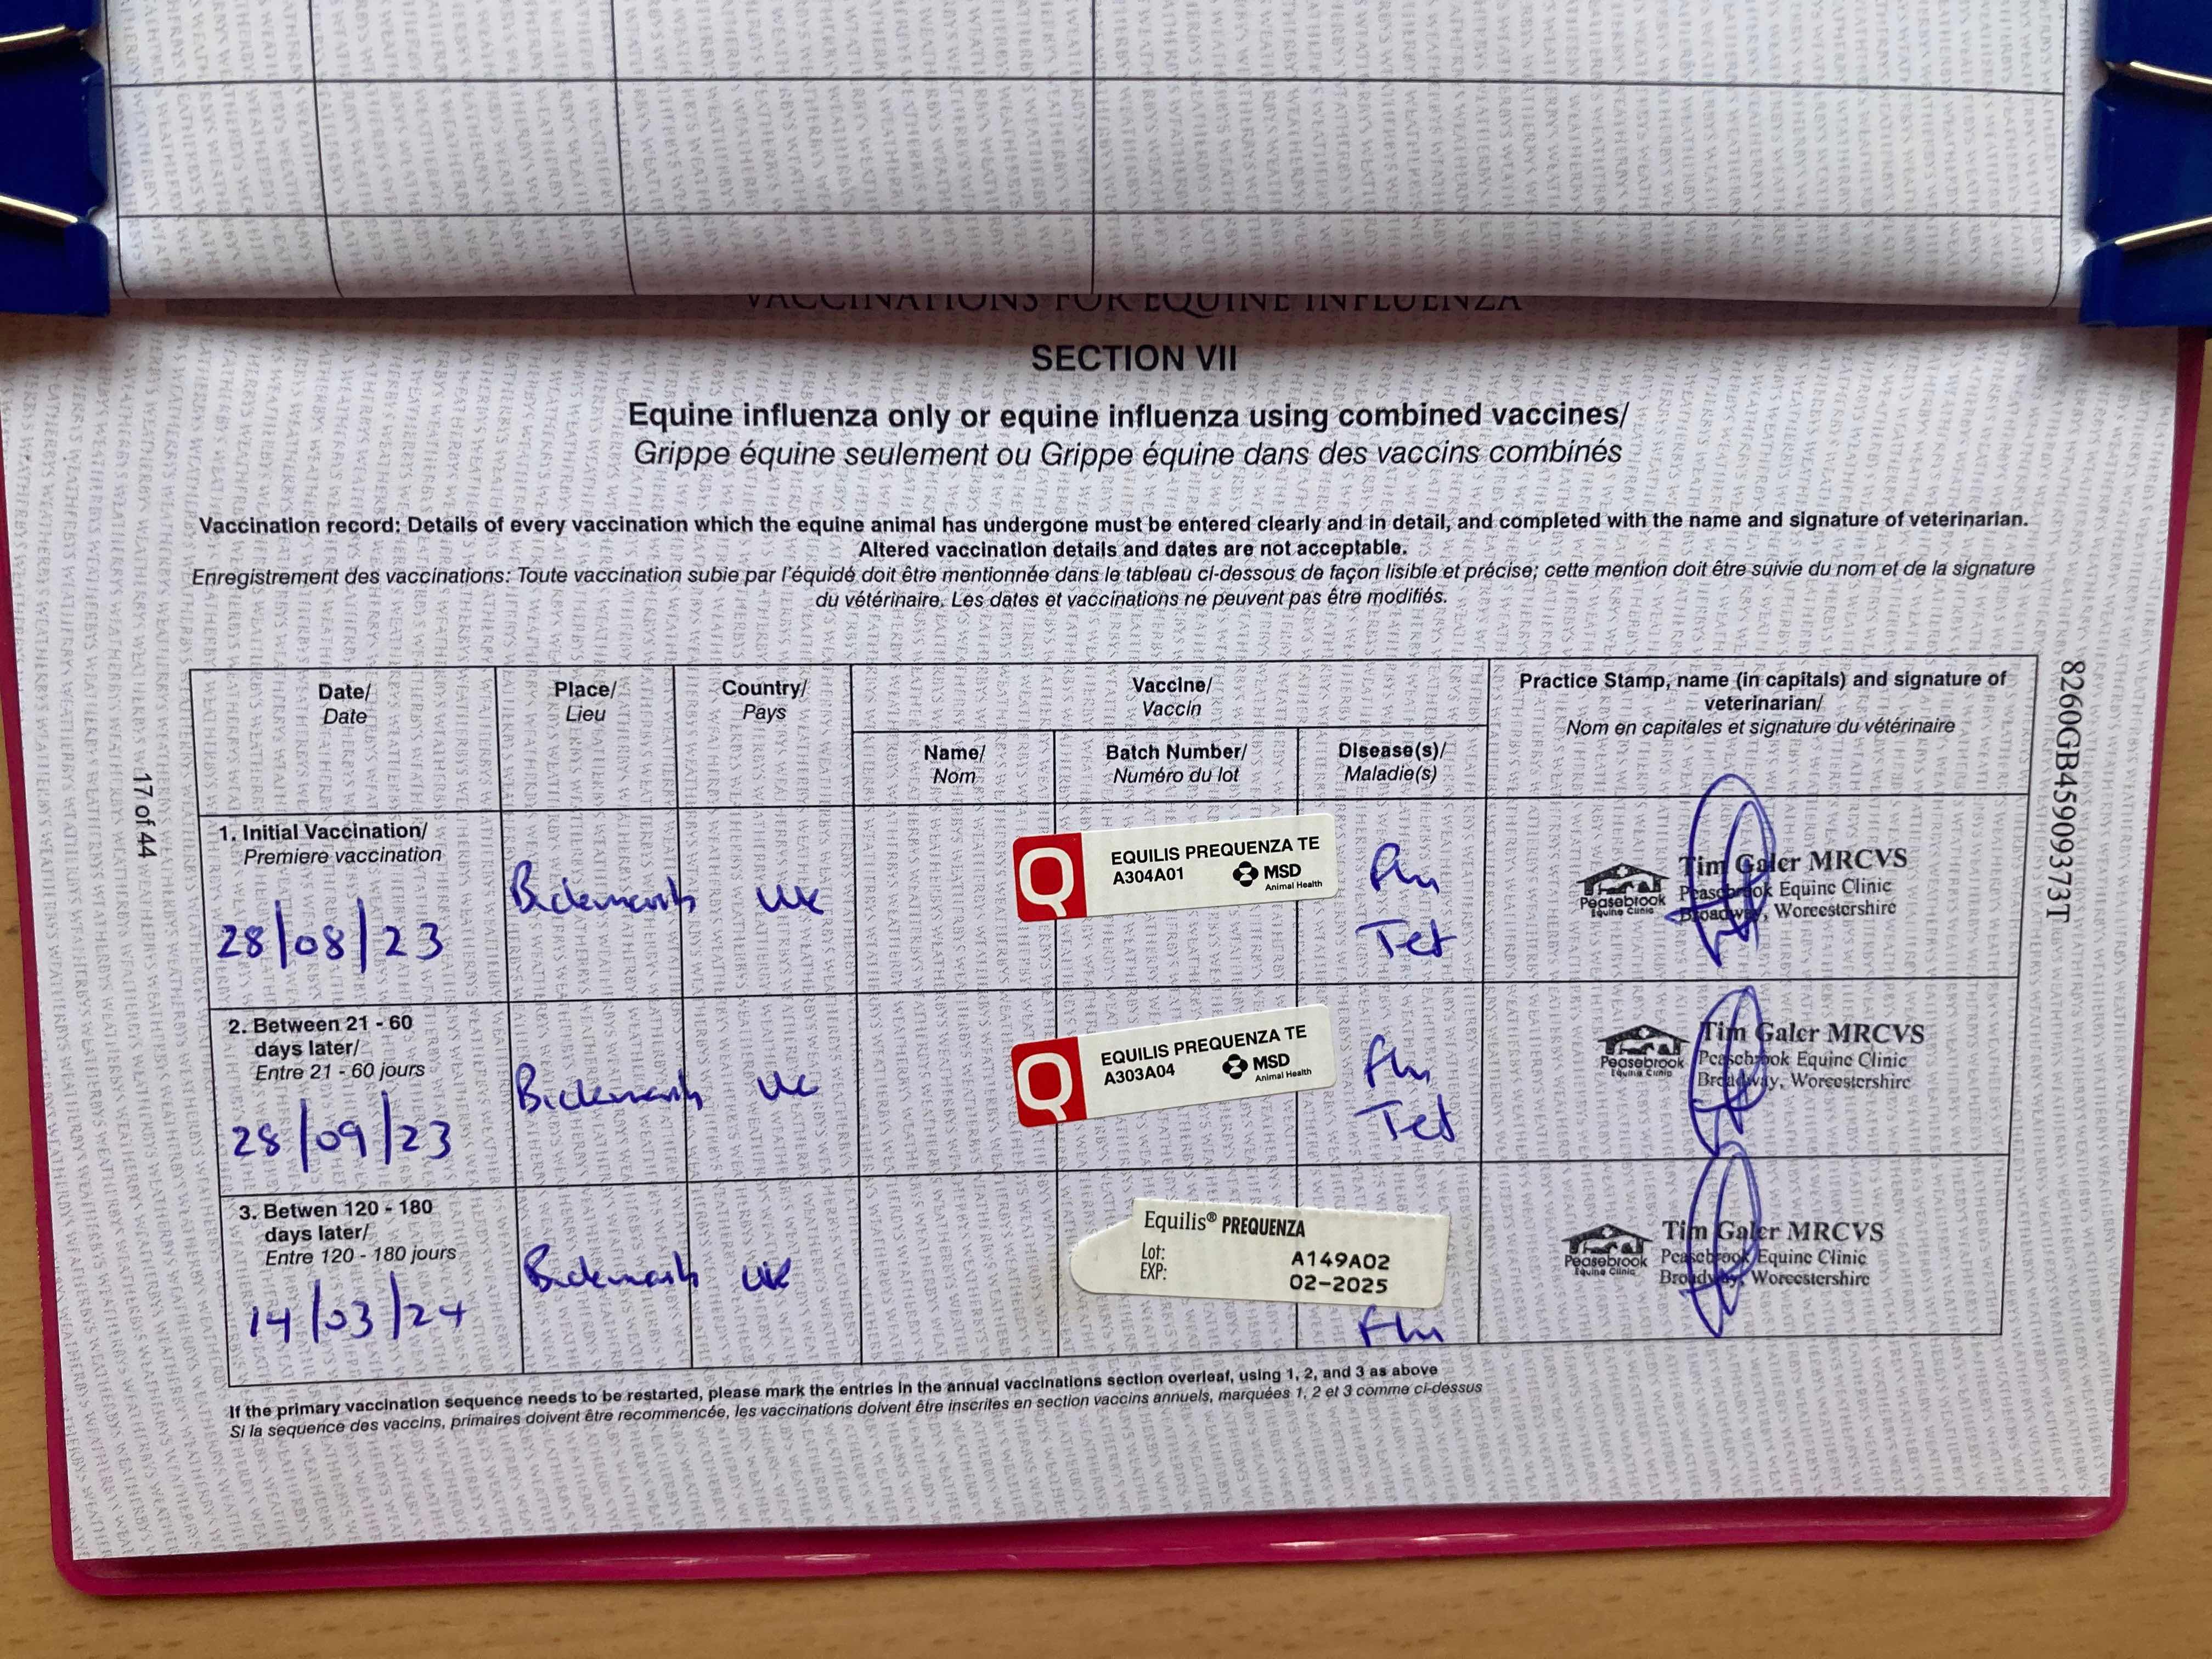 VACCINATIONS FOR EQUINE INFLUENZA
SECTION VII
Equine influenza only or equine influenza using combined vaccines/
Grippe équine seulement ou Grippe équine dans des vaccins combinés
Vaccination record: Details of every vaccination which the equine animal has undergone must be entered clearly and in detail, and completed with the name and signature of veterinarian.
Altered vaccination details and dates are not acceptable.
Enregistrement des vaccinations: Toute vaccination subie par l'équidé doit être mentionnée dans le tableau ci-dessous de façon lisible et précise; cette mention doit être suivie du nom et de la signature
du vétérinaire. Les dates et vaccinations ne peuvent pas être modifiés.
Date/
Date
Place/
Lieu
Country/
Pays
Vaccine/
Vaccin
Name/
Nom
Batch Number/
Numéro du lot
Disease(s)/
Maladie(s)
Practice Stamp, name (in capitals) and signature of
veterinarian/
Nom en capitales et signature du vétérinaire
1. Initial Vaccination/
Premiere vaccination
28/08/23
Bickmarsh
UK
Q
EQUILIS PREQUENZA TE
A304A01
MSD
Animal Health
Flu
Tet
Peasebrook
Equine Clinic
Tim Galer MRCVS
Peasebrook Equine Clinic
Broadway, Worcestershire
2. Between 21 - 60
days later/
Entre 21 - 60 jours
28/09/23
Bickmarsh
UK
Q
EQUILIS PREQUENZA TE
A303A04
MSD
Animal Health
Flu
Tet
Peasebrook
Equine Clinic
Tim Galer MRCVS
Peasebrook Equine Clinic
Broadway, Worcestershire
3. Betwen 120 - 180
days later/
Entre 120 - 180 jours
14/03/24
Bickmarsh
UK
Equilis® PREQUENZA
Lot: A149A02
EXP: 02-2025
Flu
Peasebrook
Equine Clinic
Tim Galer MRCVS
Peasebrook Equine Clinic
Broadway, Worcestershire
If the primary vaccination sequence needs to be restarted, please mark the entries in the annual vaccinations section overleaf, using 1, 2, and 3 as above
Si la sequence des vaccins, primaires doivent être recommencée, les vaccinations doivent être inscrites en section vaccins annuels, marquées 1, 2 et 3 comme ci-dessus
17 of 44
8260GB45909373T